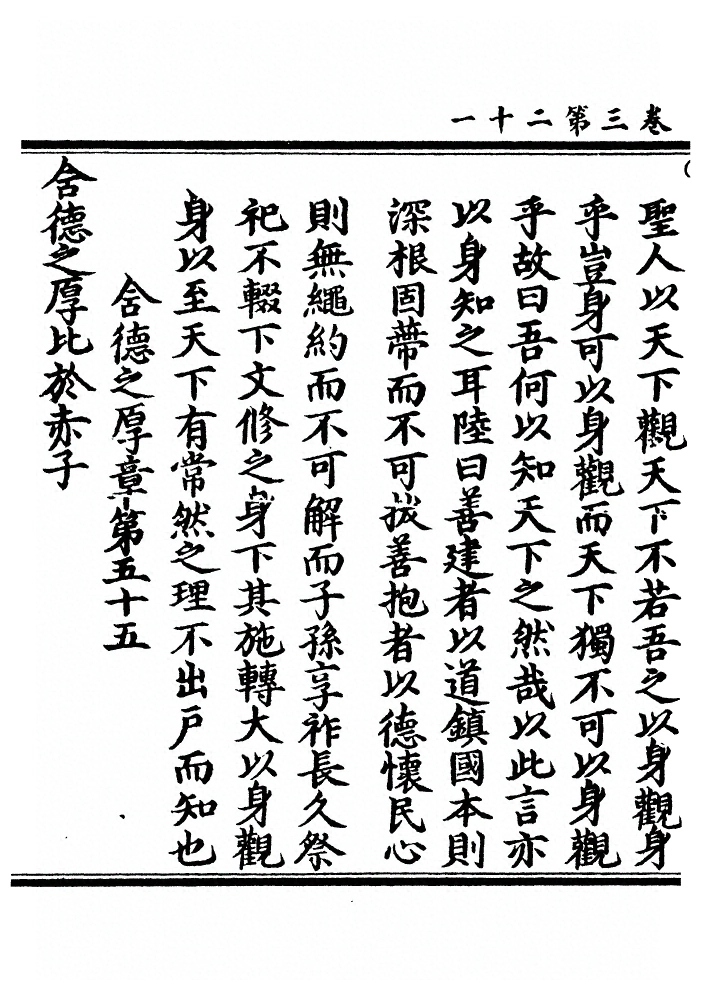 卷三第二十一
聖人以天下觀天下不若吾之以身觀身
乎豈身可以身觀而天下獨不可以身觀
乎故曰吾何以知天下之然哉以此言亦
以身知之耳陸曰善建者以道鎮國本則
深根固蔕而不可拔善抱者以德懷民心
則無繩約而不可解而子孫享祚長久祭
祀不輟下文修之身下其施轉大以身觀
身以至天下有常然之理不出戶而知也
含德之厚章第五十五
含德之厚比於赤子